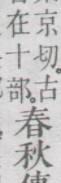 京切。古
音在十部。
春秋傳